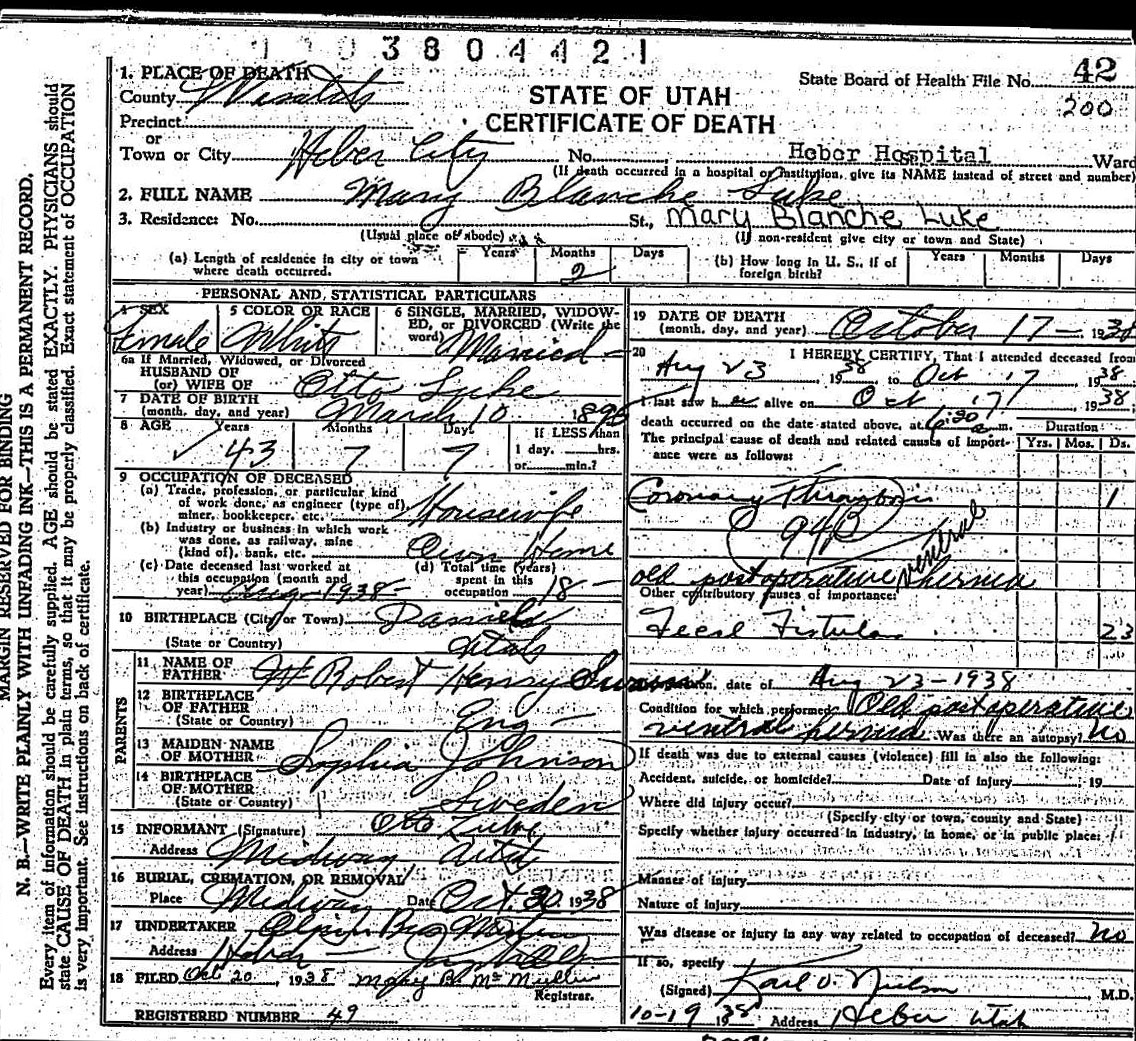 1 3 0 3 8 0 4 4 2 1
State Board of Health File No. 42
200
STATE OF UTAH
CERTIFICATE OF DEATH
1. PLACE OF DEATH
County
Precinct
or
Town or City Heber City No. Heber Hospital Ward
(If death occurred in a hospital or institution, give its NAME instead of street and number)
2. FULL NAME Mary Blanche Luke
3. Residence: No. St., Mary Blanche Luke
(Usual place of abode) (If non-resident give city or town and State)
(a) Length of residence in city or town where death occurred. Years Months 2 Days
(b) How long in U. S., if of foreign birth? Years Months Days
PERSONAL AND STATISTICAL PARTICULARS
4 SEX Female
5 COLOR OR RACE White
6 SINGLE, MARRIED, WIDOWED, or DIVORCED (Write the word) Married
6a If Married, Widowed, or Divorced
HUSBAND OF
(or) WIFE OF Otto Luke
7 DATE OF BIRTH
(month, day, and year) March 10 1895
8 AGE Years 43 Months 7 Days 7 If LESS than 1 day, hrs. or min.?
9 OCCUPATION OF DECEASED
(a) Trade, profession, or particular kind of work done, as engineer (type of), miner, bookkeeper, etc. Housewife
(b) Industry or business in which work was done, as railway, mine (kind of), bank, etc. Own Home
(c) Date deceased last worked at this occupation (month and year) Aug 1938
(d) Total time (years) spent in this occupation 18
10 BIRTHPLACE (City or Town) Daniels
(State or Country) Utah
PARENTS
11 NAME OF FATHER Robert Henry
12 BIRTHPLACE OF FATHER
(State or Country) Eng
13 MAIDEN NAME OF MOTHER Sophia Johnson
14 BIRTHPLACE OF MOTHER
(State or Country) Sweden
15 INFORMANT (Signature) Otto Luke
Address Midway, Utah
16 BURIAL, CREMATION, OR REMOVAL
Place Midway Date Oct 20 1938
17 UNDERTAKER
Address Heber
18 FILED Oct 20, 1938 Mary B. McMullin
Registrar.
REGISTERED NUMBER 49
19 DATE OF DEATH
(month, day, and year) October 17 - 1938
20 I HEREBY CERTIFY, That I attended deceased from
Aug 23 1938 to Oct 17 1938
I last saw her alive on Oct 17 1938;
death occurred on the date stated above, at 6:30 a m.
The principal cause of death and related causes of importance were as follows:
Duration
Yrs. Mos. Ds.
Coronary Thrombosis 1
94B
old postoperative ventral hernia
Other contributory causes of importance:
Fecal Fistula 23
date of Aug 23-1938
Condition for which performed Old postoperative
ventral hernia Was there an autopsy? No
If death was due to external causes (violence) fill in also the following:
Accident, suicide, or homicide? Date of injury 19
Where did injury occur?
(Specify city or town, county and State)
Specify whether injury occurred in industry, in home, or in public place:
Manner of injury
Nature of injury
Was disease or injury in any way related to occupation of deceased? No
If so, specify
(Signed) Karl O. Nielson, M.D.
10-19 1938 Address Heber Utah
MARGIN RESERVED FOR BINDING
N. B.—WRITE PLAINLY WITH UNFADING INK—THIS IS A PERMANENT RECORD.
Every item of information should be carefully supplied. AGE should be stated EXACTLY. PHYSICIANS should
state CAUSE OF DEATH in plain terms, so that it may be properly classified. Exact statement of OCCUPATION
is very important. See instructions on back of certificate.